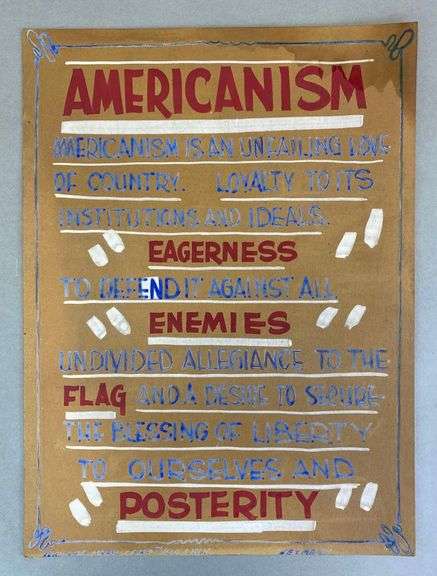 AMERICANISM
AMERICANISM IS AN UNFAILING LOVE
OF COUNTRY. LOYALTY TO ITS
INSTITUTIONS AND IDEALS.
" EAGERNESS "
TO DEFEND IT AGAINST ALL
" ENEMIES "
UNDIVIDED ALLEGIANCE TO THE
FLAG AND A DESIRE TO SECURE
THE BLESSING OF LIBERTY
TO OURSELVES AND
" POSTERITY "